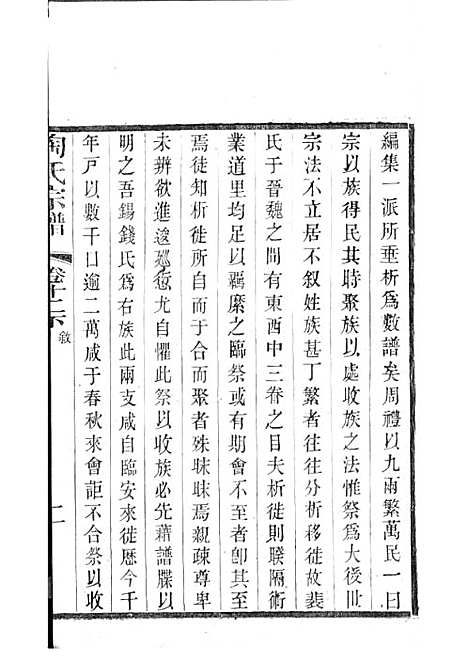 編集一派所垂析爲數譜矣周禮以九兩繫萬民一曰
宗以族得民其時聚族以處收族之法惟祭爲大後世
宗法不立居不叙姓族甚丁繁者往往分析移徙故裴
氏于晉魏之間有東西中三眷之目夫析徙則睽隔術
業道里均足以羈縻之臨祭或有期會不至者卽其甚
焉徒知析徙所由于合而聚者殊昧昧焉親疎尊卑
未辨欲進逡廵愆尤自懼此祭以收族必先藉譜牒以
明之吾錫錢氏爲右族此兩支咸自臨安來徙歷今千
年戸以數千口逾二萬咸于春秋來會詎不合祭以收
陶氏宗譜
卷十二下
敘
二